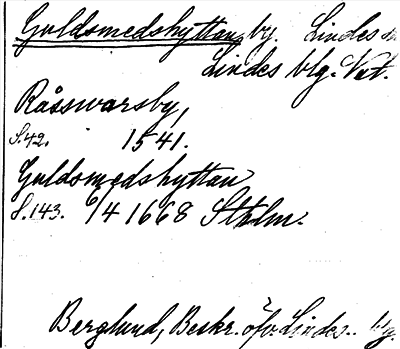 Guldsmedshyttan by. Lindes sn
Lindes blg. Vstm.
Råsswarsby,
S. 42. 1541.
Guldsmedshyttan
S. 143. 6/4 1668 Sthlm.
Berglund, Beskr. öfv. Lindes.. blg.